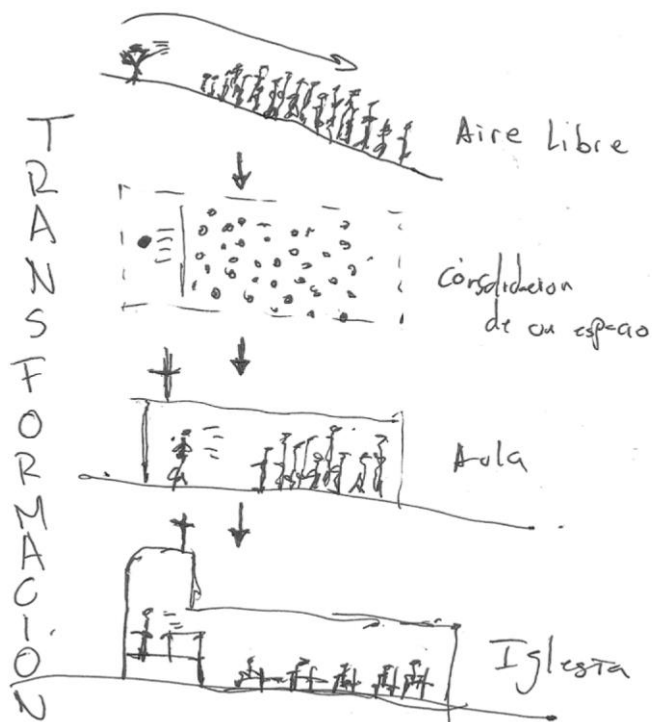 TRANSFORMACIÓN
Aire Libre
Consolidacion
de un espacio
Aula
Iglesia